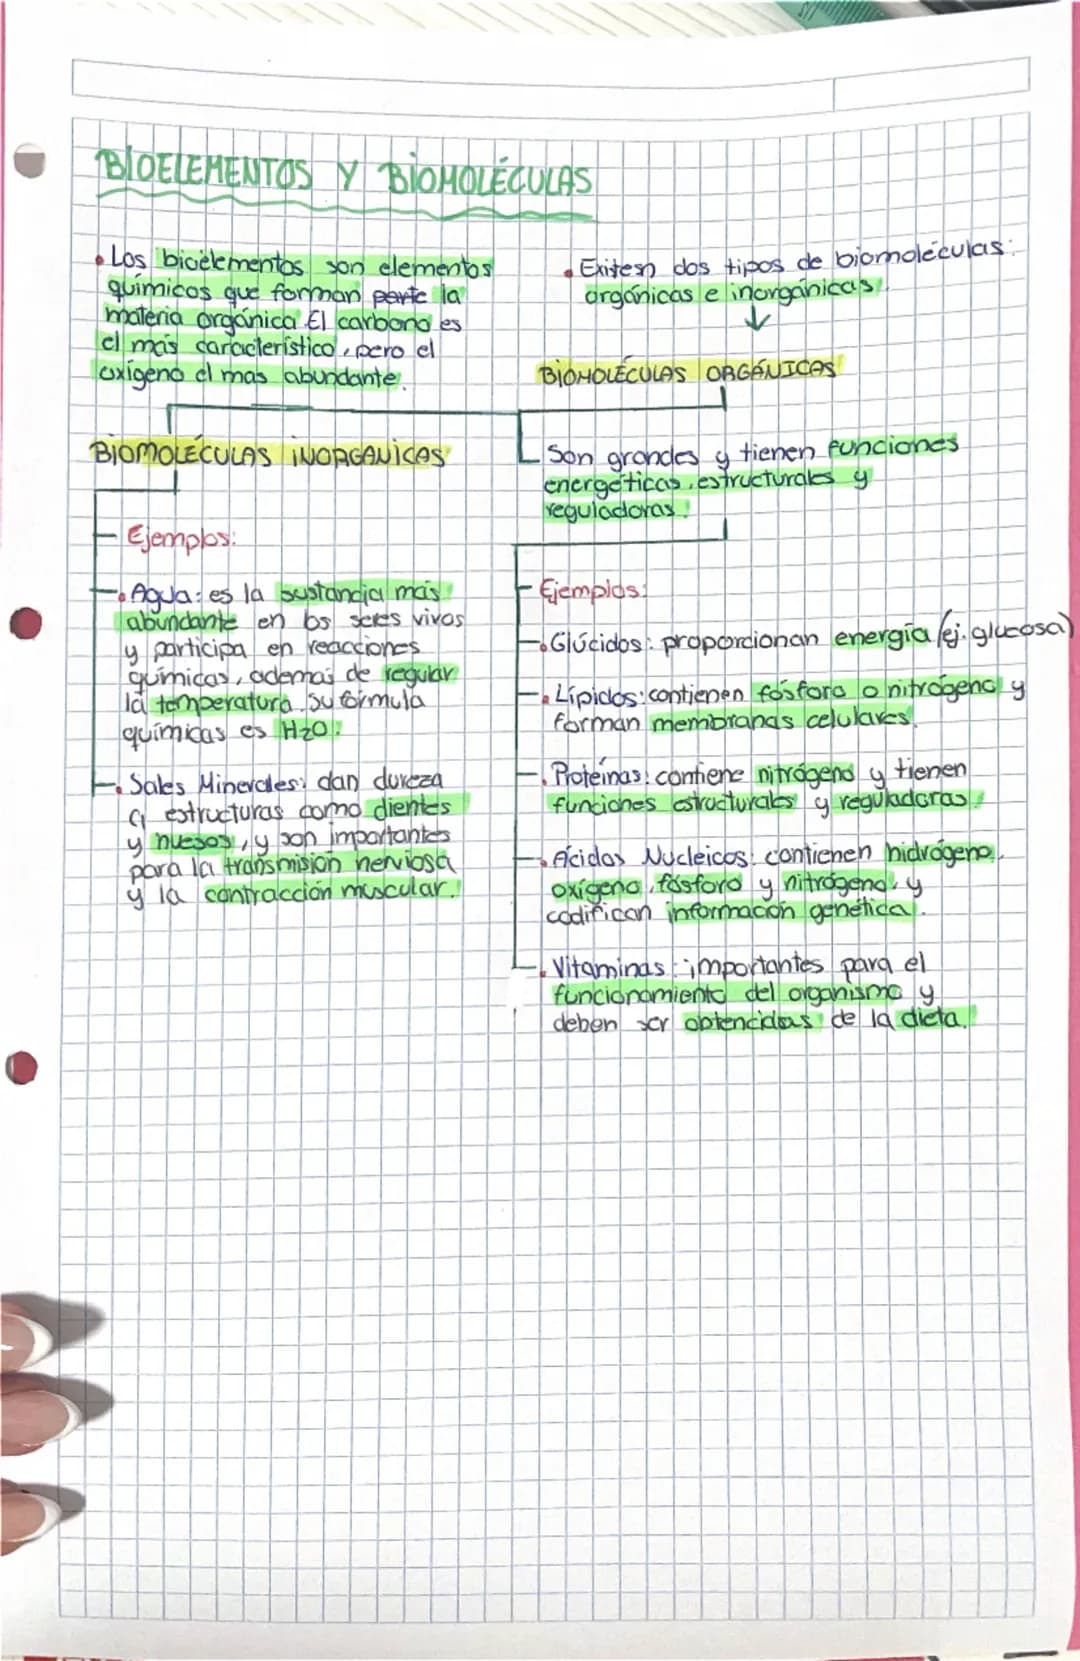 BIOELEMENTOS Y BIOMOLÉCULAS
• Los bioelementos son elementos
químicos que forman parte la
materia orgánica El carbono es
el mas característico, pero el
oxígeno el mas abundante.
• Exiten dos tipos de biomoléculas:
orgánicas e inorgánicas
BIOMOLÉCULAS INORGANICAS
Ejemplos:
• Agua: es la sustancia mas
abundante en los seres vivos
y participa en reacciones
químicas, ademas de regular
la temperatura. Su fórmula
químicas es H2O.
• Sales Minerales: dan dureza
a estructuras como dientes
y huesos, y son importantes
para la transmisión nerviosa
y la contracción muscular.
BIOMOLÉCULAS ORGÁNICAS
Son grandes y tienen funciones
energéticas, estructurales y
reguladoras.
Ejemplos:
• Glúcidos: proporcionan energía (ej. glucosa)
• Lípidos: contienen fósforo o nitrógeno y
forman membranas celulares.
• Proteínas: contiene nitrógeno y tienen
funciones estructurales y reguladoras.
• Ácidos Nucleicos: contienen hidrógeno,
oxígeno, fósforo y nitrógeno, y
codifican información genética.
• Vitaminas: importantes para el
funcionamiento del organismo y
deben ser obtencidas de la dieta.